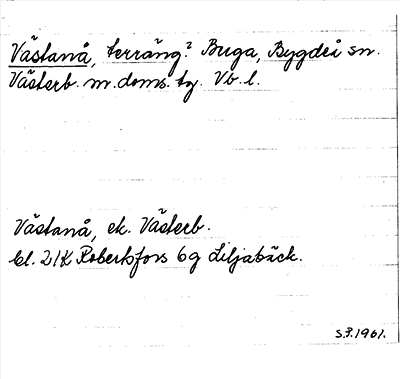 Västanå, terräng? Buga, Bygdeå sn.
Västerb. m. doms. tg. Vb. l.
Västanå, ek. Västerb.
bl. 21K Robertsfors 6g Liljabäck.
S.F. 1961.